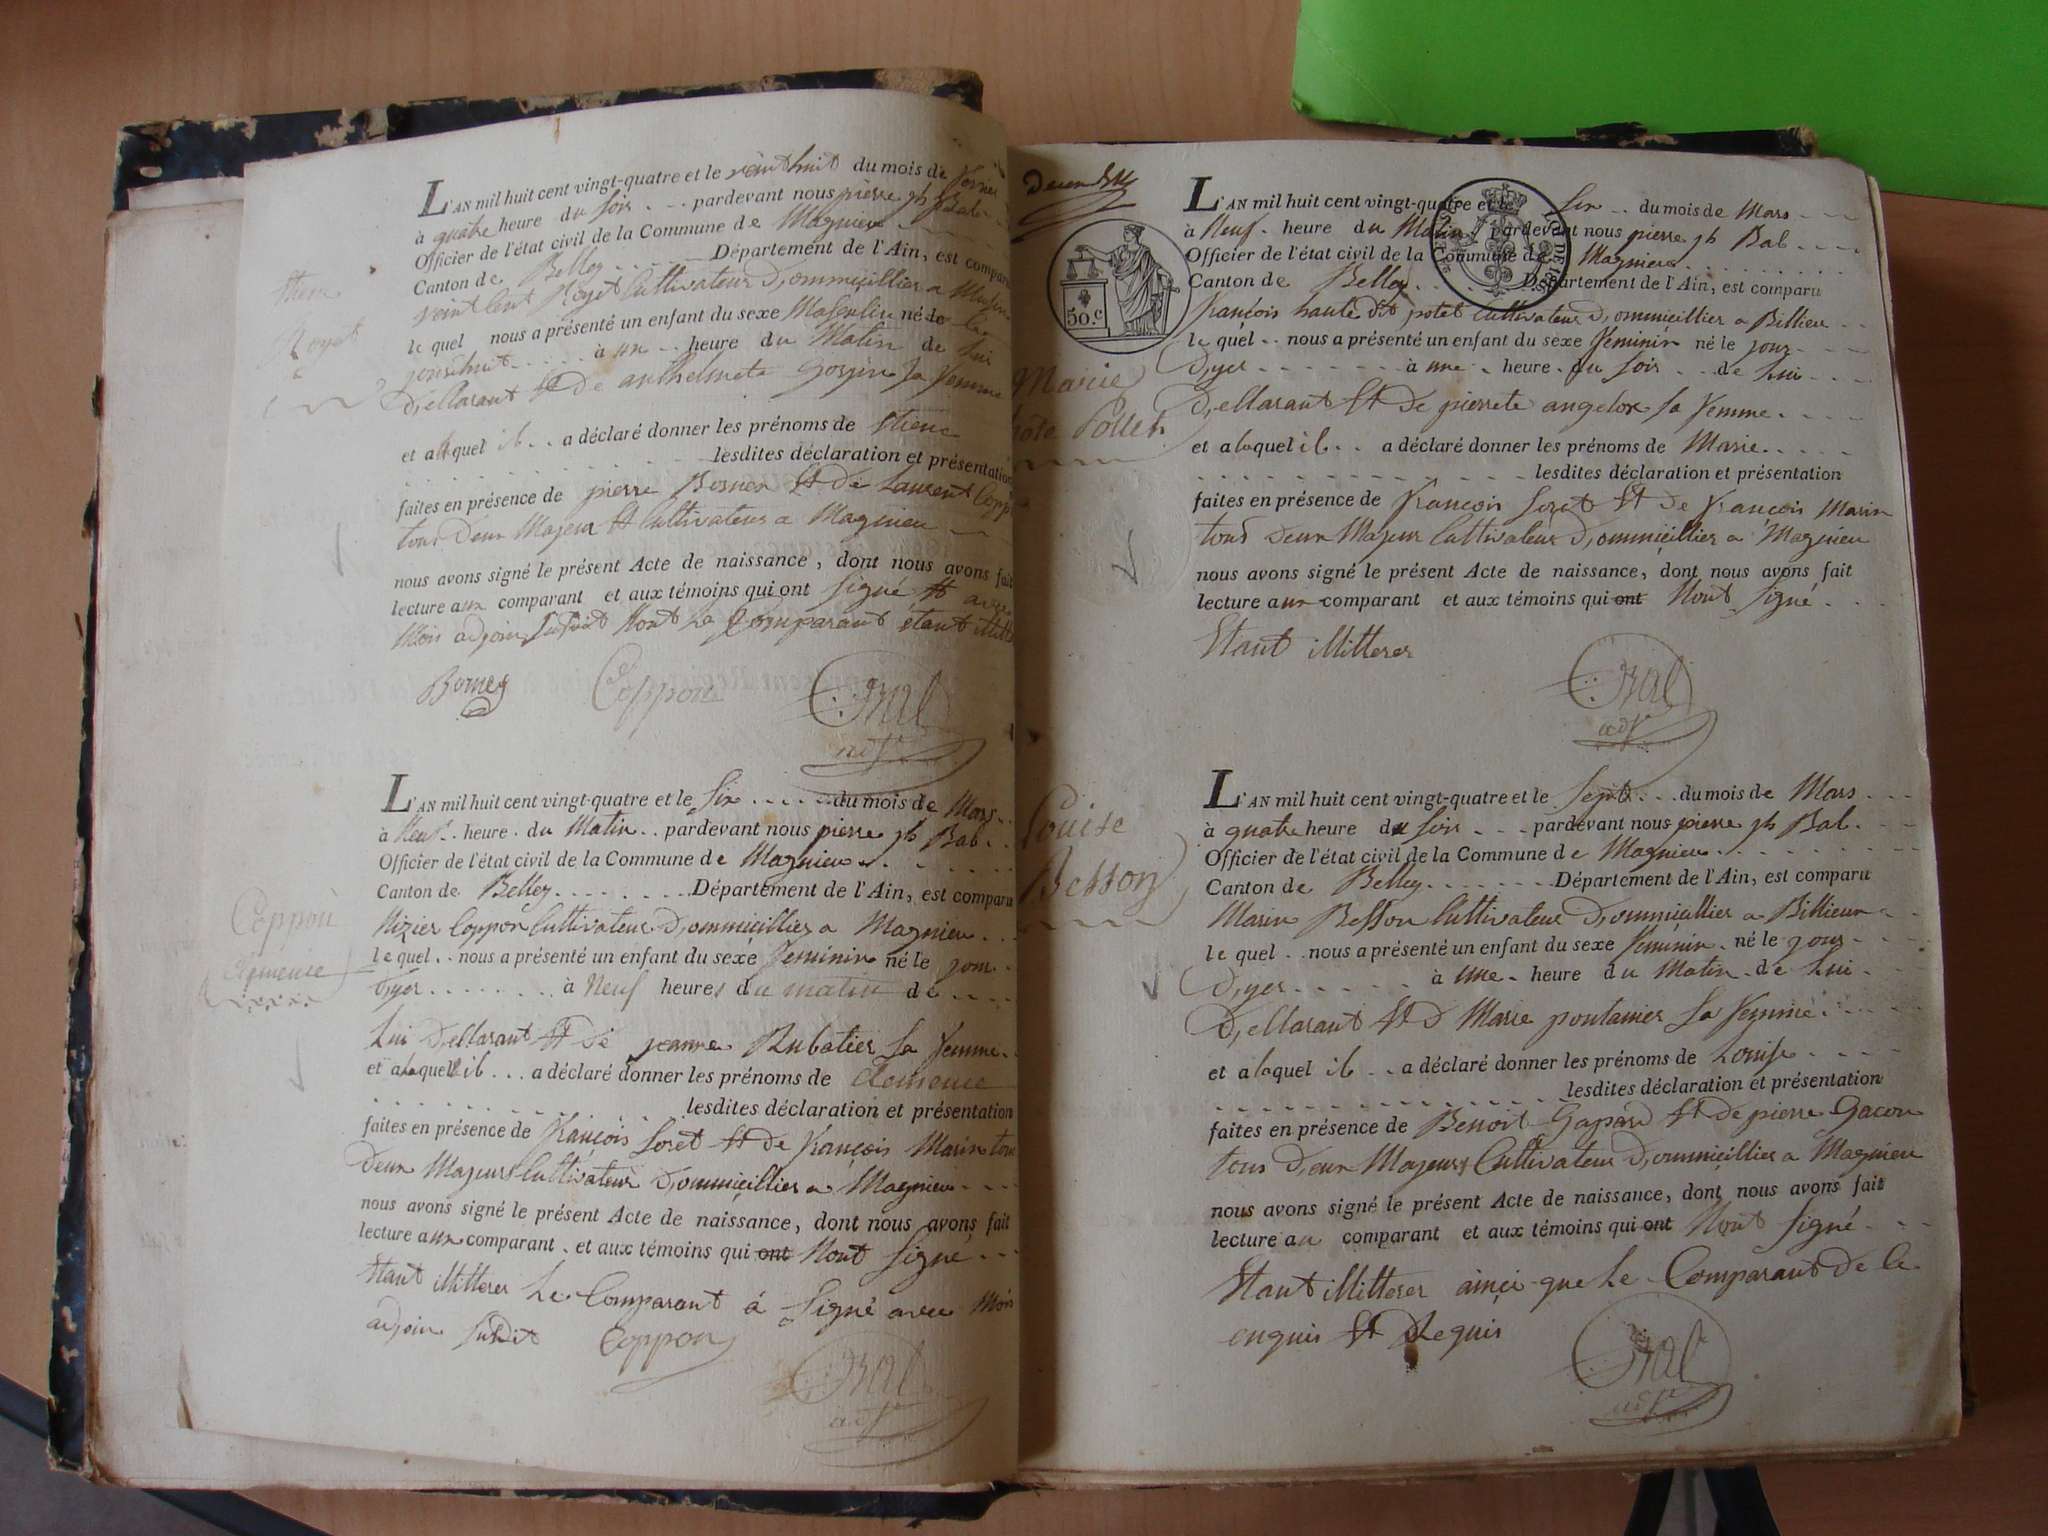 L'AN mil huit cent vingt-quatre et le vint huit du mois de
à quatre heure du soir pardevant nous pierre jh Bal
Officier de l'état civil de la Commune de Magnieu
Canton de Belley Département de l'Ain, est comparu
Cultivateur D,ommicillier a
le quel nous a présenté un enfant du sexe Masculin né le
à un heure du Matin de lui
D,ellarant Et De anthelmete sa femme
et auquel il a déclaré donner les prénoms de
lesdites déclaration et présentation
faites en présence de pierre Et De Laurent Copp
tous Deux Majeur Et Cultivateur a Magnieu
nous avons signé le présent Acte de naissance, dont nous avons fait
lecture aux comparant et aux témoins qui ont signé Et avec
Mois adjoin susdit Le Comparant étant
Coppon
Bal
adjt
L'AN mil huit cent vingt-quatre et le six du mois de Mars
à Neuf heure du Matin pardevant nous pierre jh Bal
Officier de l'état civil de la Commune de Magnieu
Canton de Belley Département de l'Ain, est comparu
Coppon
Clemence
Nizier Coppon Cultivateur D,ommicillier a Magnieu
le quel nous a présenté un enfant du sexe féminin né le jour
D,yer à Neuf heures du matin de
Lui D,ellarant Et De jeanne Rubatier sa femme
et alaquel il a déclaré donner les prénoms de Clemence
lesdites déclaration et présentation
faites en présence de françois Soret Et de françois Marin tous
deux Majeurs Cultivateur D,ommicillier a Magnieu
nous avons signé le présent Acte de naissance, dont nous avons fait
lecture aux comparant et aux témoins qui ont Nont signé
Etant illitterer Le Comparant a signé avec Mois
adjoin susdit Coppon
Bal
adjt
50.c
L'AN mil huit cent vingt-quatre et le six du mois de Mars
à Neuf heure du Matin pardevant nous pierre jh Bal
Officier de l'état civil de la Commune de Magnieu
Canton de Belley Département de l'Ain, est comparu
françois haute Dit potet Cultivateur D,ommicillier a Billieu
le quel nous a présenté un enfant du sexe féminin né le jour
D,yer à une heure du soir de Lui
Marie
D,ellarant Et De pierrete sa femme
et alaquel il a déclaré donner les prénoms de Marie
lesdites déclaration et présentation
faites en présence de françois Soret Et De françois Marin
tous Deux Majeur Cultivateur D,ommicillier a Magnieu
nous avons signé le présent Acte de naissance, dont nous avons fait
lecture aux comparant et aux témoins qui ont Nont signé
Etant illitterer
Bal
adjt
L'AN mil huit cent vingt-quatre et le sept du mois de Mars
à quatre heure du soir pardevant nous pierre jh Bal
Louise
Officier de l'état civil de la Commune de Magnieu
Canton de Belley Département de l'Ain, est comparu
Besson
Marin Besson Cultivateur D,ommicillier a Billieu
le quel nous a présenté un enfant du sexe féminin né le jour
D,yer à une heure du Matin de Lui
D,ellarant Et D Marie sa femme
et alaquel il a déclaré donner les prénoms de Louise
lesdites déclaration et présentation
faites en présence de Benoit Et De pierre Gacon
tous D,eux Majeurs Cultivateur D,ommicillier a Magnieu
nous avons signé le présent Acte de naissance, dont nous avons fait
lecture au comparant et aux témoins qui ont Nont signé
Etant illitterer ainci que Le Comparant De Ce
enquis Et Requis
Bal
adjt